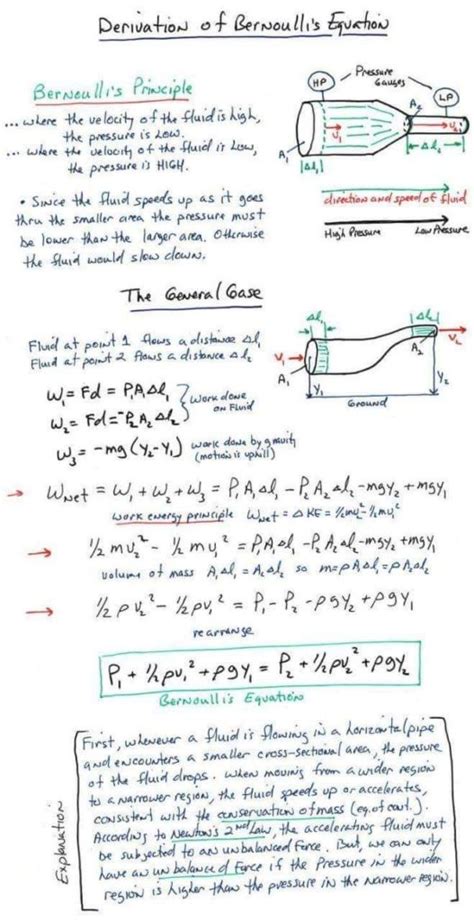 Derivation of Bernoulli's Equation
Bernoulli's Principle
... where the velocity of the fluid is high,
the pressure is Low.
... where the velocity of the fluid is Low,
the pressure is HIGH.
• Since the fluid speeds up as it goes
thru the smaller area the pressure must
be lower than the larger area. Otherwise
the fluid would slow down.
HP
Pressure
Gauges
LP
A₂
V₁
V₂
A₁
Δl₁
Δl₂
direction and speed of fluid
High Pressure
Low Pressure
The General Case
Fluid at point 1 flows a distance Δl₁
Fluid at point 2 flows a distance Δl₂
W₁ = Fd = P₁A₁Δl₁
W₂ = Fd = -P₂A₂Δl₂
work done
on Fluid
W₃ = -mg(Y₂-Y₁) work done by gravity
(motion is uphill)
Δl₁
Δl₂
V₂
V₁
A₂
A₁
Y₁
Y₂
Ground
→ Wnet = W₁ + W₂ + W₃ = P₁A₁Δl₁ - P₂A₂Δl₂ - mgy₂ + mgy₁
work energy principle Wnet = ΔKE = ½mv₂² - ½mv₁²
→ ½mv₂² - ½mv₁² = P₁A₁Δl₁ - P₂A₂Δl₂ - mgy₂ + mgy₁
volume of mass A₁Δl₁ = A₂Δl₂ so m = ρA₁Δl₁ = ρA₂Δl₂
→ ½ρv₂² - ½ρv₁² = P₁ - P₂ - ρgy₂ + ρgy₁
rearrange
P₁ + ½ρv₁² + ρgy₁ = P₂ + ½ρv₂² + ρgy₂
Bernoulli's Equation
Explanation
First, whenever a fluid is flowing in a horizontal pipe
and encounters a smaller cross-sectional area, the pressure
of the fluid drops. When moving from a wider region
to a narrower region, the fluid speeds up or accelerates,
consistent with the conservation of mass (eq. of cont.).
According to Newton's 2nd Law, the accelerating fluid must
be subjected to an unbalanced force. But, we can only
have an unbalanced force if the Pressure in the wider
region is higher than the pressure in the narrower region.